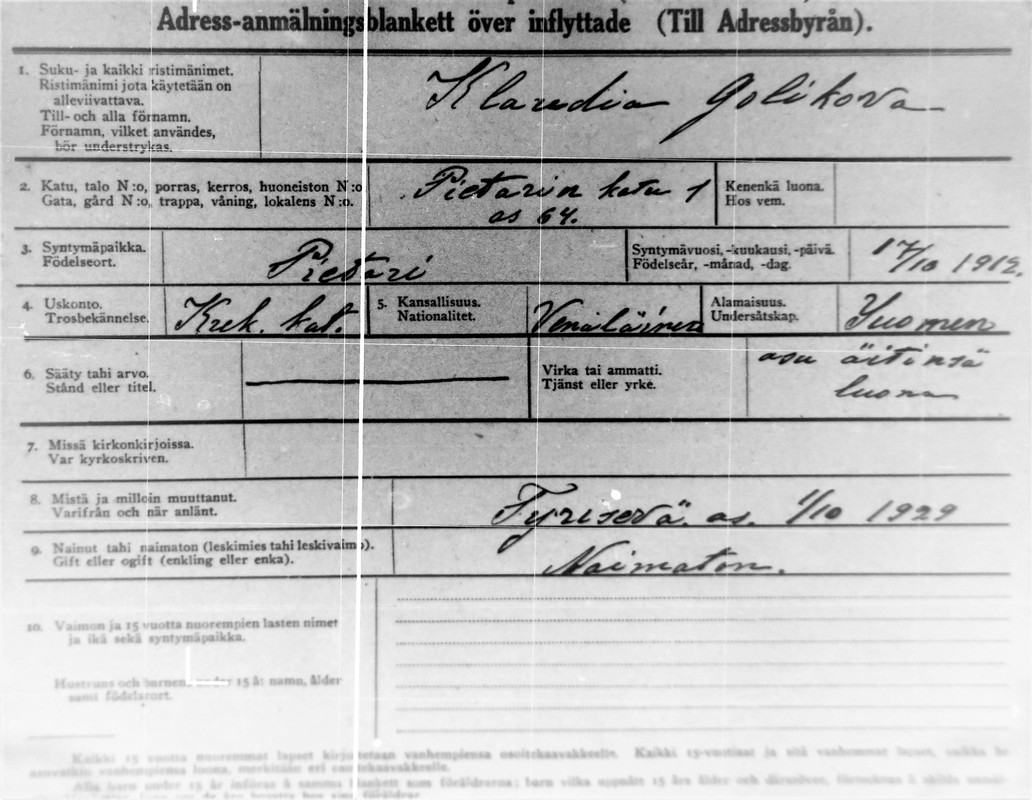 Adress-anmälningsblankett över inflyttade (Till Adressbyrån).
1. Suku- ja kaikki ristimänimet.
Ristimänimi jota käytetään on
alleviivattava.
Till- och alla förnamn.
Förnamn, vilket användes,
bör understrykas.
Klaudia Golikova
2. Katu, talo N:o, porras, kerros, huoneiston N:o
Gata, gård N:o, trappa, våning, lokalens N:o.
Pietarin katu 1
as 64.
Kenenkä luona.
Hos vem.
3. Syntymäpaikka.
Födelseort.
Pietari
Syntymävuosi, -kuukausi, -päivä.
Födelseår, -månad, -dag.
17/10 1912.
4. Uskonto.
Trosbekännelse.
Krek. kat.
5. Kansallisuus.
Nationalitet.
Venäläinen
Alamaisuus.
Undersåtskap.
Suomen
6. Sääty tahi arvo.
Stånd eller titel.
Virka tai ammatti.
Tjänst eller yrke.
asu äitinsä
luona
7. Missä kirkonkirjoissa.
Var kyrkoskriven.
8. Mistä ja milloin muuttanut.
Varifrån och när anlänt.
Tyrisevä. as. 1/10 1929
9. Nainut tahi naimaton (leskimies tahi leskivaimo).
Gift eller ogift (enkling eller enka).
Naimaton.
10. Vaimon ja 15 vuotta nuorempien lasten nimet
ja ikä sekä syntymäpaikka.
Hustruns och barnens under 15 år namn, ålder
samt födelseort.
Kaikki 15 vuotta nuoremmat lapset kirjoitetaan vanhempiensa osoitekaavakkeelle. Kaikki 15-vuotiaat ja sitä vanhemmat lapset, vaikka he
asuvatkin vanhempiensa luona, merkitään eri osoitekaavakkeelle.
Alla barn under 15 år införas å samma blankett som föräldrarna; barn vilka uppnått 15 års ålder och däröver,